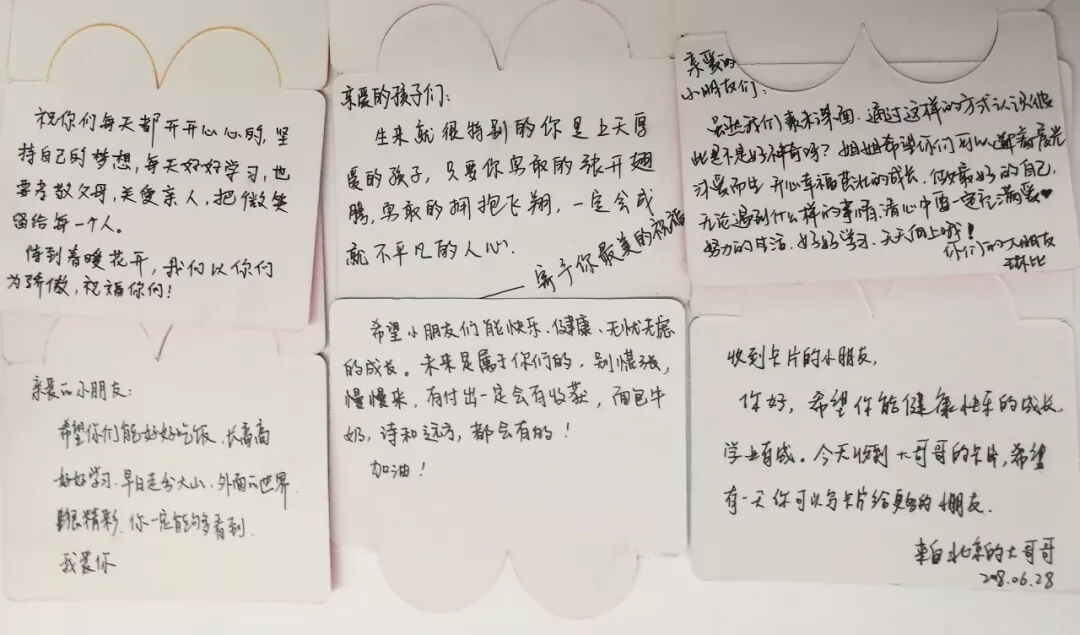 祝你们每天都开开心心的,坚
持自己的梦想,每天好好学习,也
要孝敬父母,关爱亲人,把微笑
留给每一个人。
待到春暖花开,我们以你们
为骄傲,祝福你们!
亲爱的孩子们:
生来就很特别的你是上天厚
爱的孩子,只要你勇敢的张开翅
膀,勇敢的拥抱飞翔,一定会成
就不平凡的人心.
——寄予你最美的祝福
亲爱的
小朋友们:
虽然我们素未谋面,通过这样的方式认识彼
此是不是好神奇呀?姐姐希望你们可以
沐爱而生 开心幸福茁壮的成长,做最好的自己,
无论遇到什么样的事情,请心中要一定充满爱♥
努力的生活,好好学习,天天向上哦!
你们的大朋友
琳比
亲爱的小朋友:
希望你们能好好吃饭,长高高
好好学习,早日走出大山,外面的世界
很精彩,你一定能够看到.
我爱你
希望小朋友们能快乐、健康、无忧无虑
的成长。未来是属于你们的,别慌张,
慢慢来,有付出一定会有收获,面包牛
奶,诗和远方,都会有的!
加油!
收到卡片的小朋友,
你好,希望你能健康快乐的成长
学业有成。今天收到大哥哥的卡片,希望
有一天你可以写卡片给更多的小朋友.
来自北京的大哥哥
2018.06.28